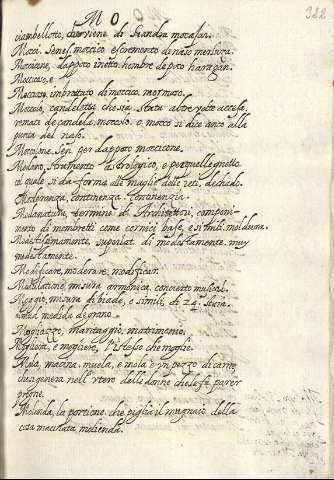 M O
322
ciambellotto, che viene di Fiandra mocajar.
Mocci. Senes. moccico escremento di naso
Moccicone, dappoco inetto, hombre de poco haragan.
Moccioso, e
Moccioso, imbrattato di moccico, mormoso.
Moccolo, candeletta che sia stata altre volte accesa,
remate de candela, mocolo. o mocco si dice anco alla
punta del naso.
Moccione. Sen. per dappoco moccicone.
Modano, strumento astrologico, e per quello ghetto
col quale si da forma alle maglie delle reti, dechado.
Moderanza, continenza. continenzia.
Modanatura, termine di Architettori, componi-
mento di membretti come cornici base, e simili. moldura.
Modestissimamente, superlat. di modestamente. muy
modestamente.
Modificare, moderare, modificar.
Modulatione, misura armonica, concierto musical.
Moggio, misura di biade, e simili, di 24 staia.
medida de grano.
Mogliazzo, maritaggio, matrimonio.
Mogliera, e mogliere, l'istesso che moglie.
Mola, macina. muela, e mola è un pezzo di carne,
che si genera nell'utero alle donne che le fa parer
pregne.
Molenda, la portione, che piglia il mugnaio della
cosa macinata. molienda.